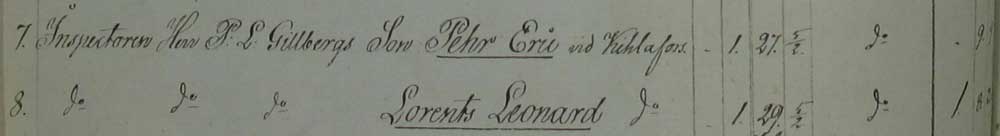 7. Inspectoren Herr P. L. Gillbergs Son Pehr Eric vid Kihlafors. - 1. 27. 5/2. do
8. do do do Lorents Leonard do 1. 29. 5/2. do 1